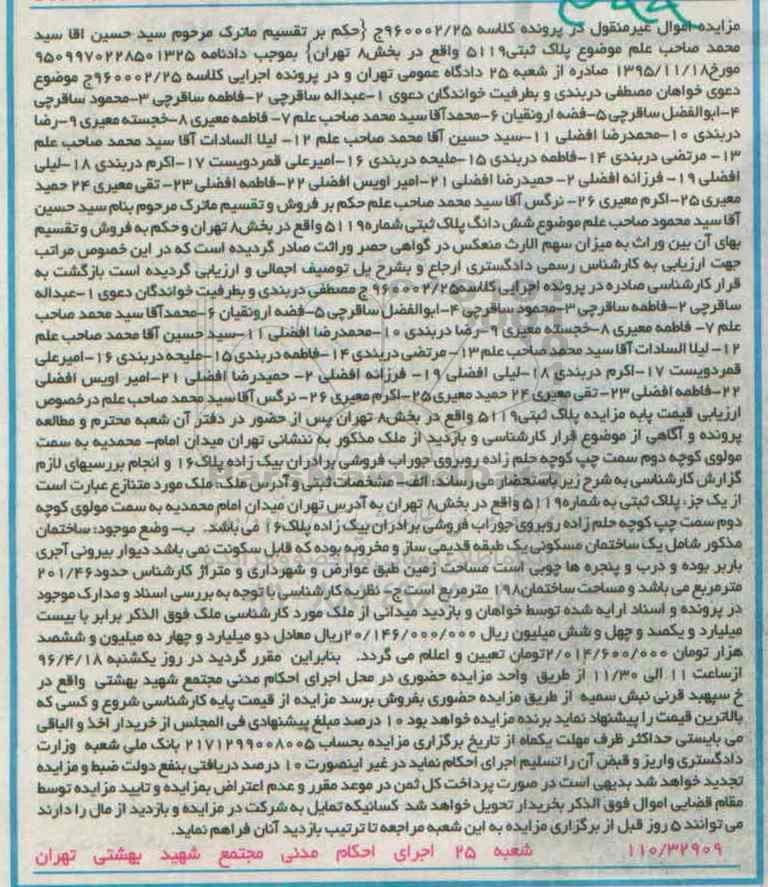 مزایده اموال غیرمنقول در پرونده کلاسه ۹۶۰۰۰۲/۲۵ج {حکم بر تقسیم ماترک مرحوم سید حسین اقا سید
محمد صاحب علم موضوع پلاک ثبتی۵۱۱۹ واقع در بخش۸ تهران} بموجب دادنامه ۹۵۰۹۹۷۰۲۲۸۵۰۱۳۲۵
مورخ۱۳۹۵/۱۱/۱۸ صادره از شعبه ۲۵ دادگاه عمومی تهران و در پرونده اجرایی کلاسه ۹۶۰۰۰۲/۲۵ج موضوع
دعوی خواهان مصطفی دربندی و بطرفیت خواندگان دعوی ۱-عبداله ساقرچی ۲-فاطمه ساقرچی ۳-محمود ساقرچی
۴-ابوالفضل ساقرچی۵-فضه ارونقیان ۶-محمدآقا سید محمد صاحب علم ۷- فاطمه معیری ۸-خجسته معیری ۹-رضا
دربندی ۱۰-محمدرضا افضلی ۱۱-سید حسین آقا محمد صاحب علم ۱۲- لیلا السادات آقا سید محمد صاحب علم
۱۳- مرتضی دربندی ۱۴-فاطمه دربندی ۱۵-ملیحه دربندی ۱۶-امیرعلی قمردویست ۱۷-اکرم دربندی ۱۸-لیلی
افضلی ۱۹- فرزانه افضلی ۲- حمیدرضا افضلی ۲۱-امیر اویس افضلی ۲۲-فاطمه افضلی ۲۳- تقی معیری ۲۴ حمید
معیری ۲۵-اکرم معیری ۲۶- نرگس آقا سید محمد صاحب علم حکم بر فروش و تقسیم ماترک مرحوم بنام سید حسین
آقا سید محمود صاحب علم موضوع شش دانگ پلاک ثبتی شماره ۵۱۱۹ واقع در بخش۸ تهران و حکم به فروش و تقسیم
بهای آن بین وراث به میزان سهم الارث منعکس در گواهی حصر وراثت صادر گردیده است که در این خصوص مراتب
جهت ارزیابی به کارشناس رسمی دادگستری ارجاع و بشرح یل توصیف اجمالی و ارزیابی گردیده است بازگشت به
قرار کارشناسی صادره در پرونده اجرایی کلاسه۹۶۰۰۰۲/۲۵ ج مصطفی دربندی و بطرفیت خواندگان دعوی ۱-عبداله
ساقرچی ۲-فاطمه ساقرچی ۳-محمود ساقرچی ۴-ابوالفضل ساقرچی ۵-فضه ارونقیان ۶-محمدآقا سید محمد صاحب
علم ۷- فاطمه معیری ۸-خجسته معیری ۹-رضا دربندی ۱۰-محمدرضا افضلی ۱۱-سید حسین آقا محمد صاحب علم
۱۲- لیلا السادات آقا سید محمد صاحب علم ۱۳- مرتضی دربندی ۱۴-فاطمه دربندی ۱۵-ملیحه دربندی ۱۶-امیرعلی
قمردویست ۱۷-اکرم دربندی ۱۸-لیلی افضلی ۱۹- فرزانه افضلی ۲- حمیدرضا افضلی ۲۱-امیر اویس افضلی
۲۲-فاطمه افضلی ۲۳- تقی معیری ۲۴ حمید معیری ۲۵-اکرم معیری ۲۶- نرگس آقا سید محمد صاحب علم درخصوص
ارزیابی قیمت پایه مزایده پلاک ثبتی۵۱۱۹ واقع در بخش۸ تهران پس از حضور در دفتر آن شعبه محترم و مطالعه
پرونده و آگاهی از موضوع قرار کارشناسی و بازدید از ملک مذکور به ننشانی تهران میدان امام- محمدیه به سمت
مولوی کوچه دوم سمت چپ کوچه حلم زاده روبروی جوراب فروشی برادران بیک زاده پلاک۱۶ و انجام بررسیهای لازم
گزارش کارشناسی به شرح زیر باستحضار می رساند: الف- مشخصات ثبتی و آدرس ملک: ملک مورد متنازع عبارت است
از یک جز، پلاک ثبتی به شماره۵۱۱۹ واقع در بخش۸ تهران به آدرس تهران میدان امام محمدیه به سمت مولوی کوچه
دوم سمت چپ کوچه حلم زاده روبروی جوراب فروشی برادران بیک زاده پلاک۱۶ می باشد. ب- وضع موجود: ساختمان
مذکور شامل یک ساختمان مسکونی یک طبقه قدیمی ساز و مخروبه بوده که قابل سکونت نمی باشد دیوار بیرونی آجری
باربر بوده و درب و پنجره ها چوبی است مساحت زمین طبق عوارض و شهرداری و متراژ کارشناس حدود۲۰۱/۴۶
مترمربع می باشد و مساحت ساختمان۱۹۸ مترمربع است ج- نظریه کارشناسی با توجه به بررسی اسناد و مدارک موجود
در پرونده و اسناد ارایه شده توسط خواهان و بازدید میدانی از ملک مورد کارشناسی ملک فوق الذکر برابر با بیست
میلیارد و یکصد و چهل و شش میلیون ریال ۲۰/۱۴۶/۰۰۰/۰۰۰ریال معادل دو میلیارد و چهار ده میلیون و ششصد
هزار تومان ۲/۰۱۴/۶۰۰/۰۰۰تومان تعیین و اعلام می گردد. بنابراین مقرر گردید در روز یکشنبه ۹۶/۴/۱۸
ازساعت ۱۱ الی ۱۱/۳۰ از طریق واحد مزایده حضوری در محل اجرای احکام مدنی مجتمع شهید بهشتی واقع در
خ سپهبد قرنی نبش سمیه از طریق مزایده حضوری بفروش برسد مزایده از قیمت پایه کارشناسی شروع و کسی که
بالاترین قیمت را پیشنهاد نماید برنده مزایده خواهد بود ۱۰ درصد مبلغ پیشنهادی فی المجلس از خریدار اخذ و الباقی
می بایستی حداکثر ظرف مهلت یکماه از تاریخ برگزاری مزایده بحساب ۲۱۷۱۲۹۹۰۰۸۰۰۵ بانک ملی شعبه وزارت
دادگستری واریز و قبض آن را تسلیم اجرای احکام نماید در غیر اینصورت ۱۰ درصد دریافتی بنفع دولت ضبط و مزایده
تجدید خواهد شد بدیهی است در صورت پرداخت کل ثمن در موعد مقرر و عدم اعتراض بمزایده و تایید مزایده توسط
مقام قضایی اموال فوق الذکر بخریدار تحویل خواهد شد کسانیکه تمایل به شرکت در مزایده و بازدید از مال را دارند
می توانند ۵ روز قبل از برگزاری مزایده به این شعبه مراجعه تا ترتیب بازدید آنان فراهم نماید.
۱۱۰/۳۲۹۰۹ شعبه ۲۵ اجرای احکام مدنی مجتمع شهید بهشتی تهران